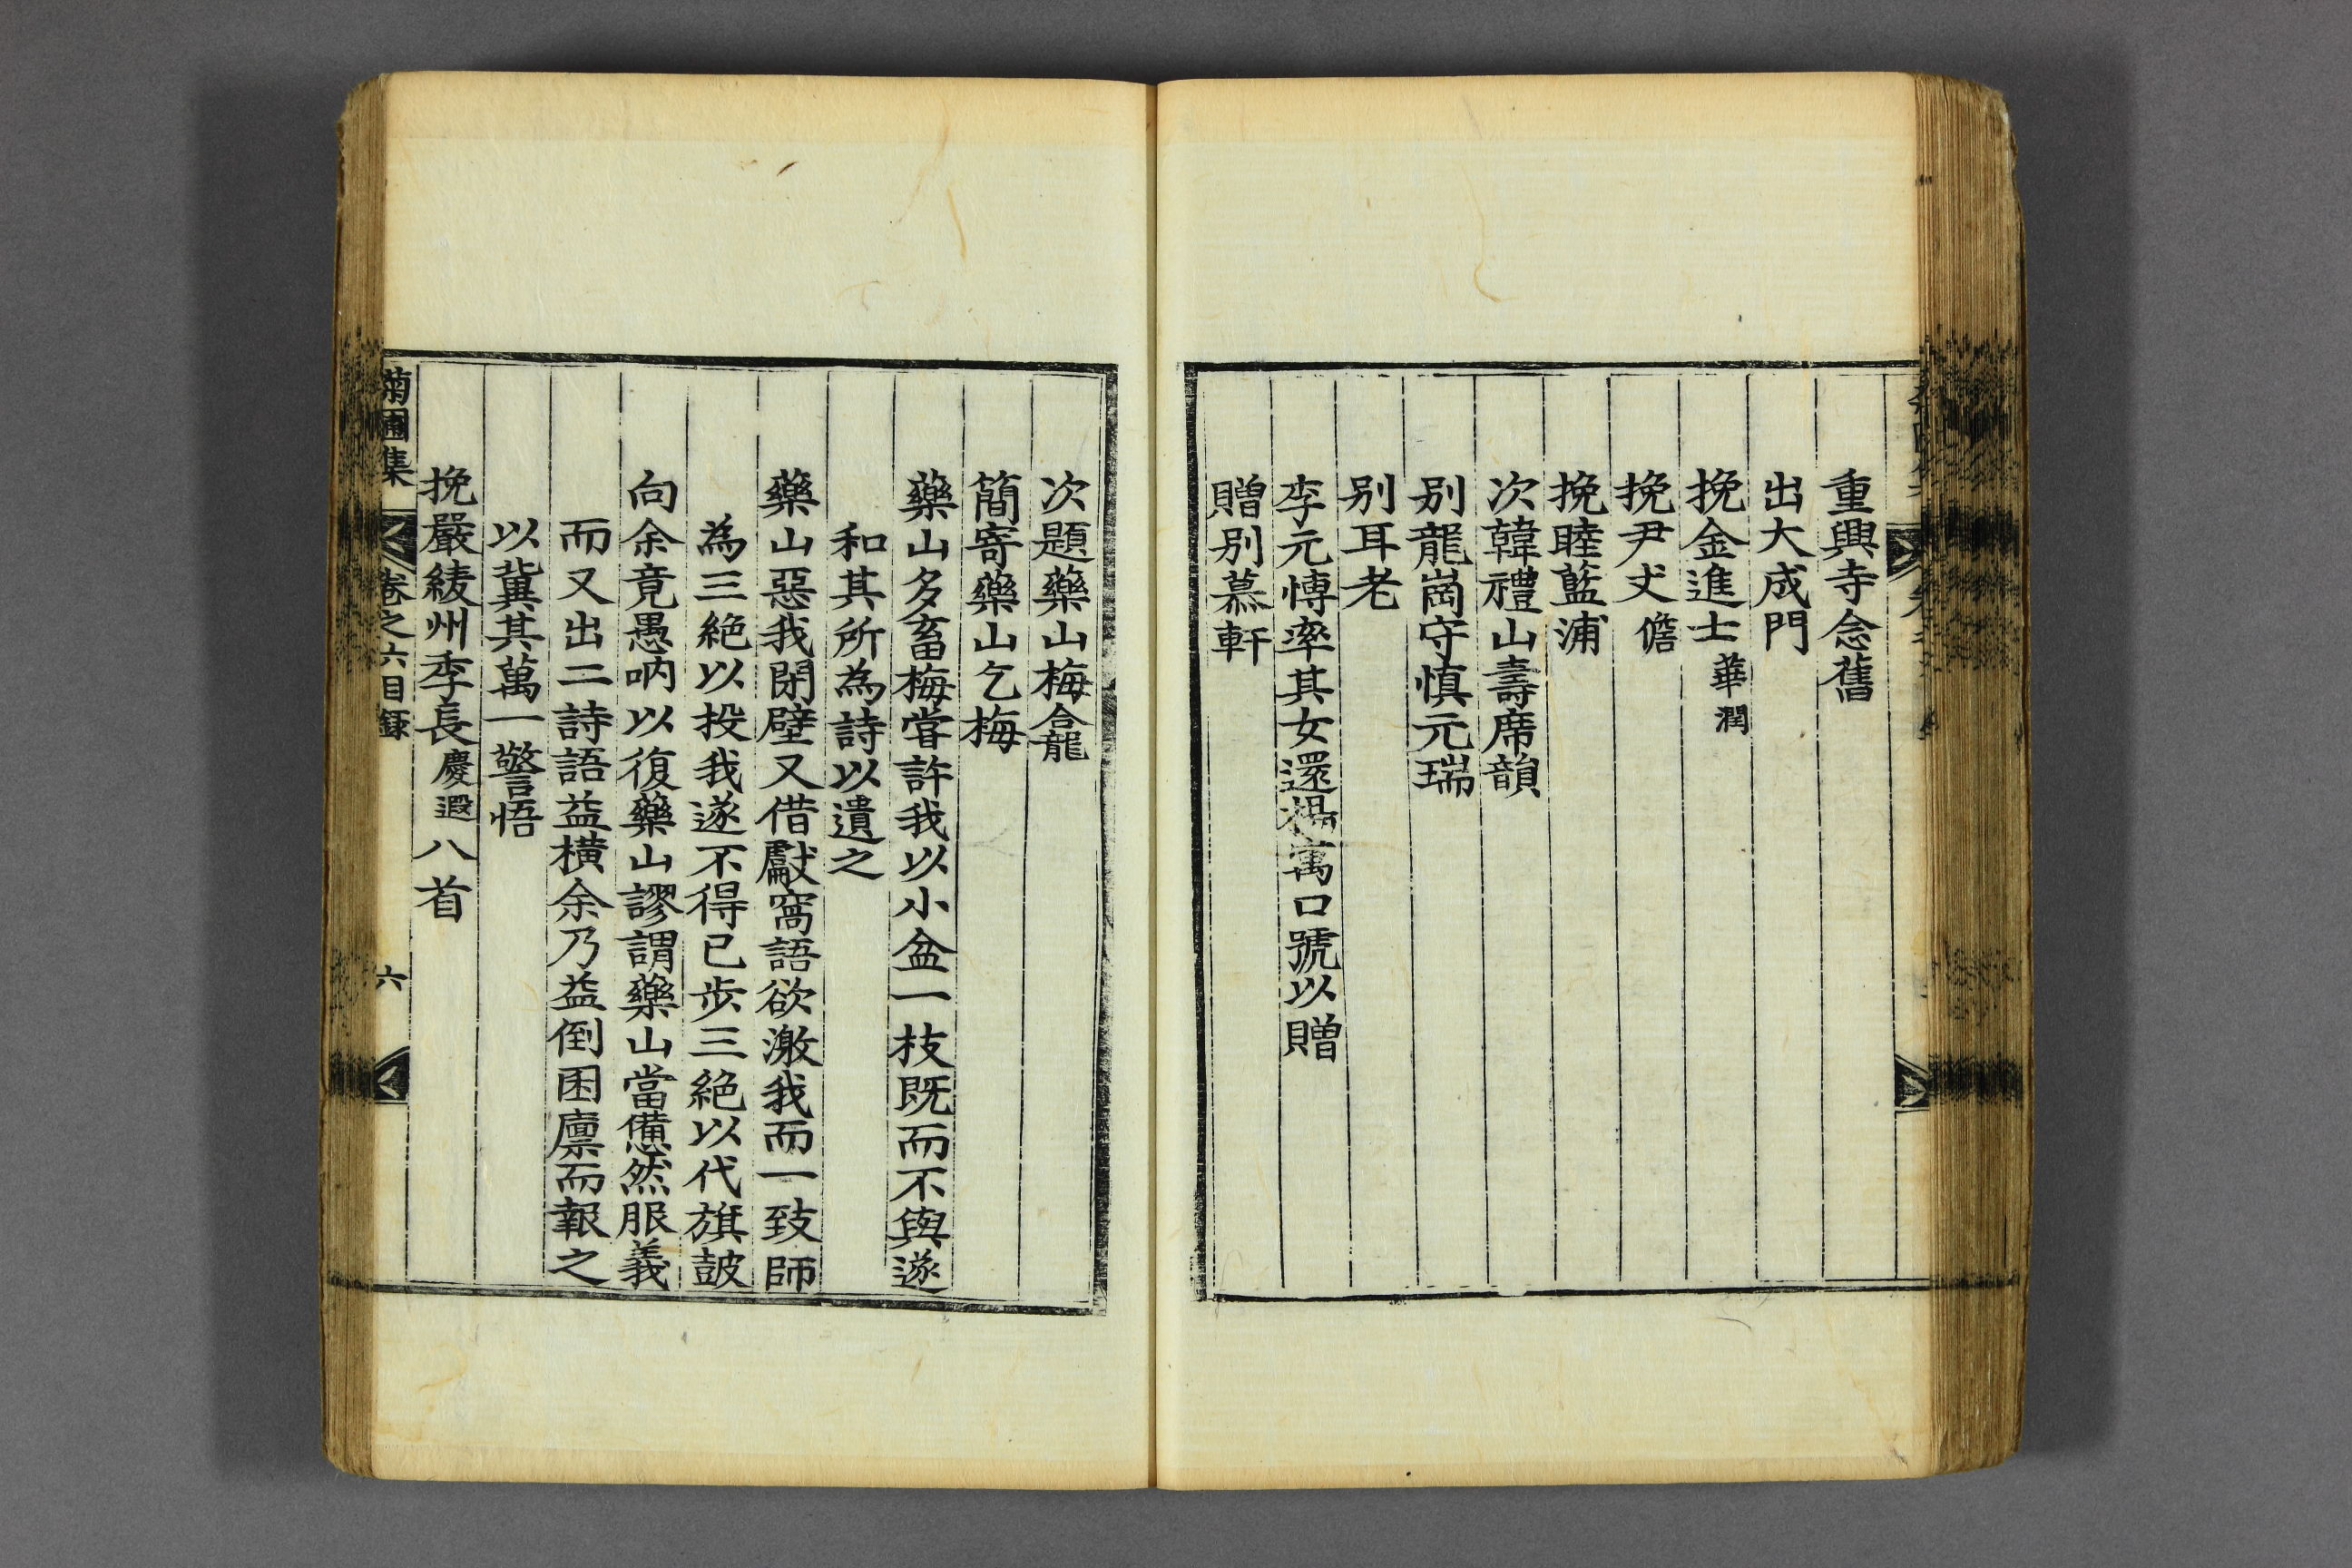 重興寺念舊
出大成門
挽金進士華潤
挽尹丈儋
挽睦藍浦
次韓禮山壽席韻
別龍崗守愼元瑞
別耳老
李元愽率其女還楊寓口號以贈
贈別慕軒
次題藥山梅合龍
簡寄藥山乞梅
藥山多畜梅甞許我以小盆一枝既而不與遂
和其所爲詩以遺之
藥山惡我閉壁又借獻窩語欲激我而一致師
爲三絶以投我遂不得已步三絶以代旗鼓
向余竟愚吶以復藥山謬謂藥山當憊然服義
而又出二詩語益橫余乃益倒囷廪而報之
以冀其萬一警悟
挽嚴綾州季長慶遐八首
菊圃集 卷之六目錄 六